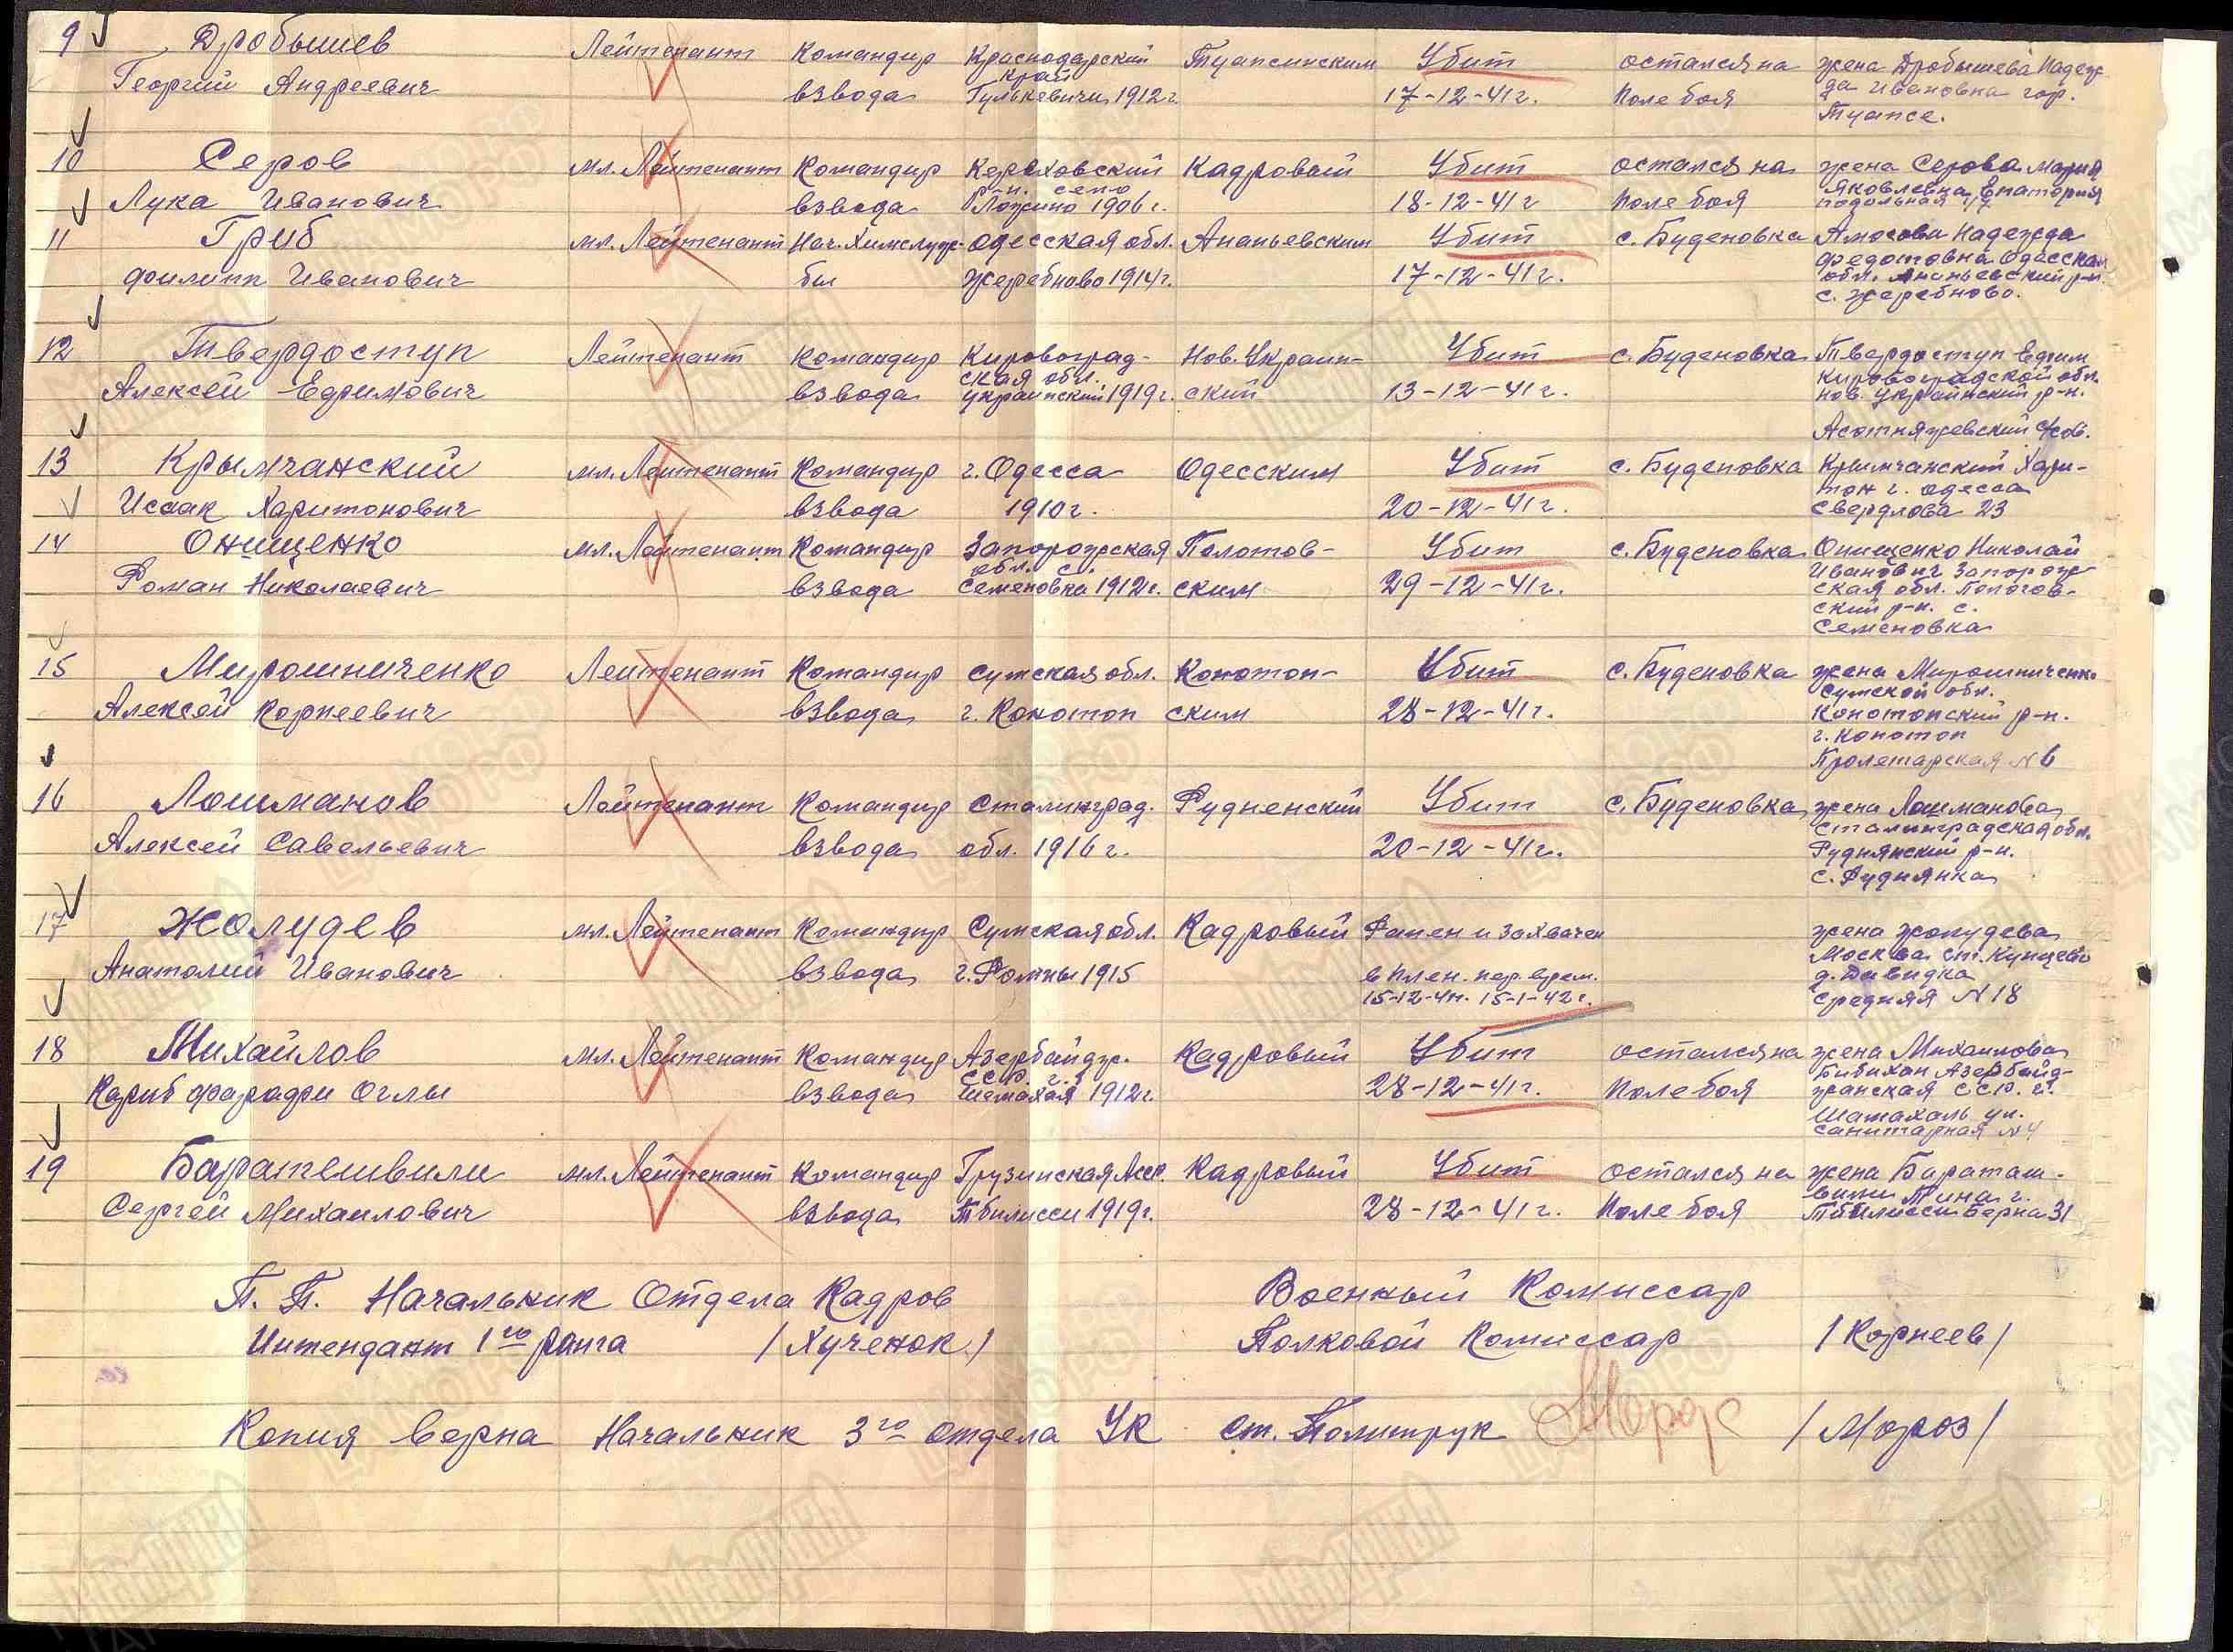 9 Дробышев Лейтенант Командир Краснодарский Туапсинским Убит остался на жена Дробышева Надеж
край
Георгий Андреевич взвода Гулькевичи 1912г. 17-12-41г. Поле боя да Ивановна гор.
Туапсе.
10 Серов мл. Лейтенант Командир Кадровый Убит остался на жена Серова Мария
р-н. село Яковлевна Евпатория
Лука Иванович взвода Ложино 1906г. 18-12-41г Поле боя подольная 17
11 Гриб мл. Лейтенант Нач. Химслуж- Одесская обл. Ананьевским Убит с. Буденовка Амосова Надежда
Федотовна Одесская
Филипп Иванович бы жеребково 1914г. 17-12-41г. обл. Ананьевский р-н.
с. жеребково.
12 Твердоступ Лейтенант Командир Кировоград- Нов. Украин- Убит с. Буденовка Твердоступ Ефим
ская обл. Кировоградской обл.
Алексей Ефимович взвода украинский 1919г. ский 13-12-41г. нов. Украинский р-н.
13 Крымчанский мл. Лейтенант Командир г. Одесса Одесским Убит с. Буденовка Крымчанский Хари-
тон г. Одесса
Исаак Харитонович взвода 1910г. 20-12-41г. Свердлова 23
14 Онищенко мл. Лейтенант Командир Запорожская Пологов- Убит с. Буденовка Онищенко Николай
обл. с. Иванович Запорож
Роман Николаевич взвода Семеновка 1912г. ским 29-12-41г. ская обл. Пологов-
ский р-н. с.
Семеновка
15 Мирошниченко Лейтенант Командир Сумская обл. Конотоп- Убит с. Буденовка жена Мирошниченко
Сумской обл.
Алексей Корнеевич взвода г. Конотоп ским 28-12-41г. Конотопский р-н.
г. Конотоп
Пролетарская N 6
16 Лошманов Лейтенант Командир Сталинград. Рудненский Убит с. Буденовка жена Лошманова
Сталинградская обл.
Алексей Савельевич взвода обл. 1916г. 20-12-41г. Руднянский р-н.
с. Руднянка
17 Жолудев мл. Лейтенант Командир Сумская обл. Кадровый Ранен и захвачен жена Жолудева
Москва ст. Кунцево
Анатолий Иванович взвода г. Ромны 1915 в плен. пер. врем. д. Давидка
15-12-41г. 15-1-42г. Средняя N 18
18 Михайлов мл. Лейтенант Командир Азербайдж. Кадровый Убит остался на жена Михаилова
ССР. г. Бибихан Азербайд-
Кариб фарафи Оглы взвода Шемахая 1912г. 28-12-41г. Поле боя жанская ССР. г.
Шамахаль ул.
Санитарная N 4
19 Баратешвили мл. Лейтенант Командир Грузинская Кадровый Убит остался на жена Бараташ-
вили Тина г.
Сергей Михаилович взвода Тбилисси 1919г. 28-12-41г. Поле боя Тбилисси Берна 31
П. П. Начальник Отдела Кадров Военный Комиссар
Интендант 1го ранга /Хученок/ Полковой Комиссар /Корнеев/
Копия верна Начальник 3го отдела УК ст. Политрук Мороз /Мороз/